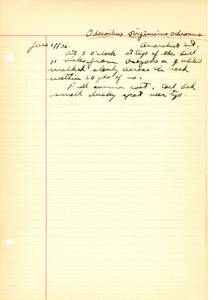 Odocoileus virginianus ochrourus
June 1/36
at 3 o'clock at top of the hill
11 miles from Osoyoos a
walked slowly across the road
within 20 yds of us.
Full summer coat, tail
small dusky spot near tip.